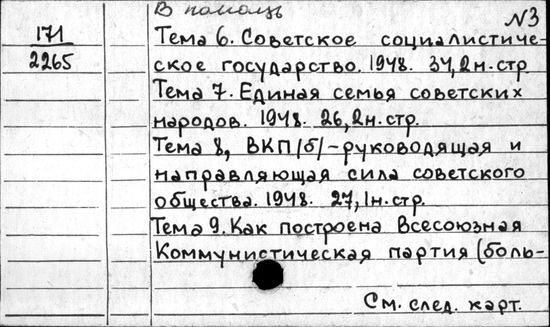 В помощь
№3
171
2265
Тема 6. Советское социалистиче-
ское государство. 1948. 34,2н.стр
Тема 7. Единая семья советских
народов. 1948. 26,2н.стр.
Тема 8, ВКП/б/-руководящая и
направляющая сила советского
общества. 1948. 27,1н.стр.
Тема 9. Как построена Всесоюзная
Коммунистическая партия (боль-
См. след. карт.